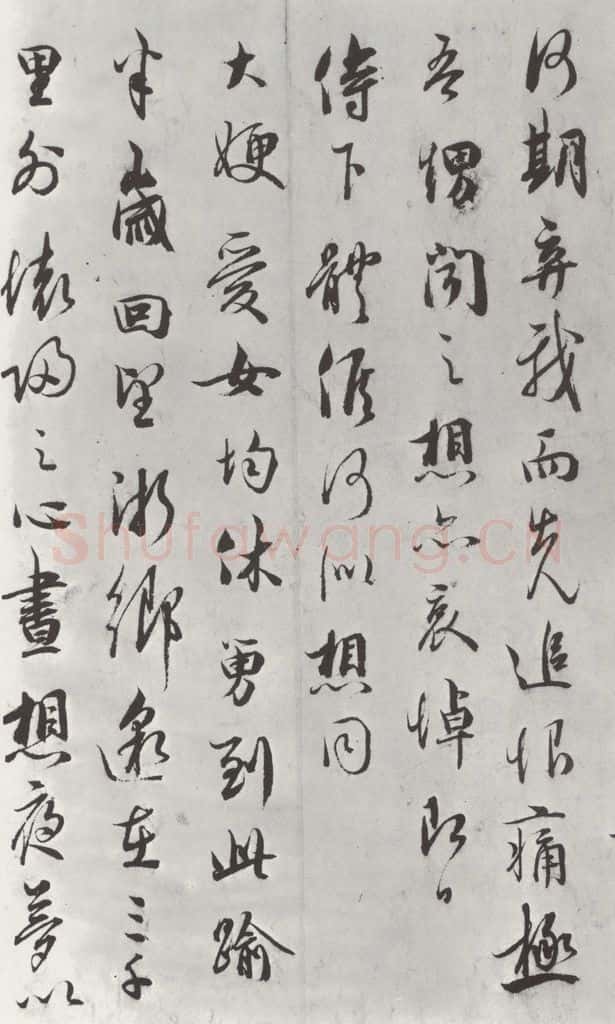 何期弃我而先追恨痛極
吾甥聞之想亦哀悼即日
侍下體候何似想同
大㛐愛女均休舅到此踰
半歲回望浙鄉邈在三千
里外懷歸之心晝想夜夢以
Shufawang.CN